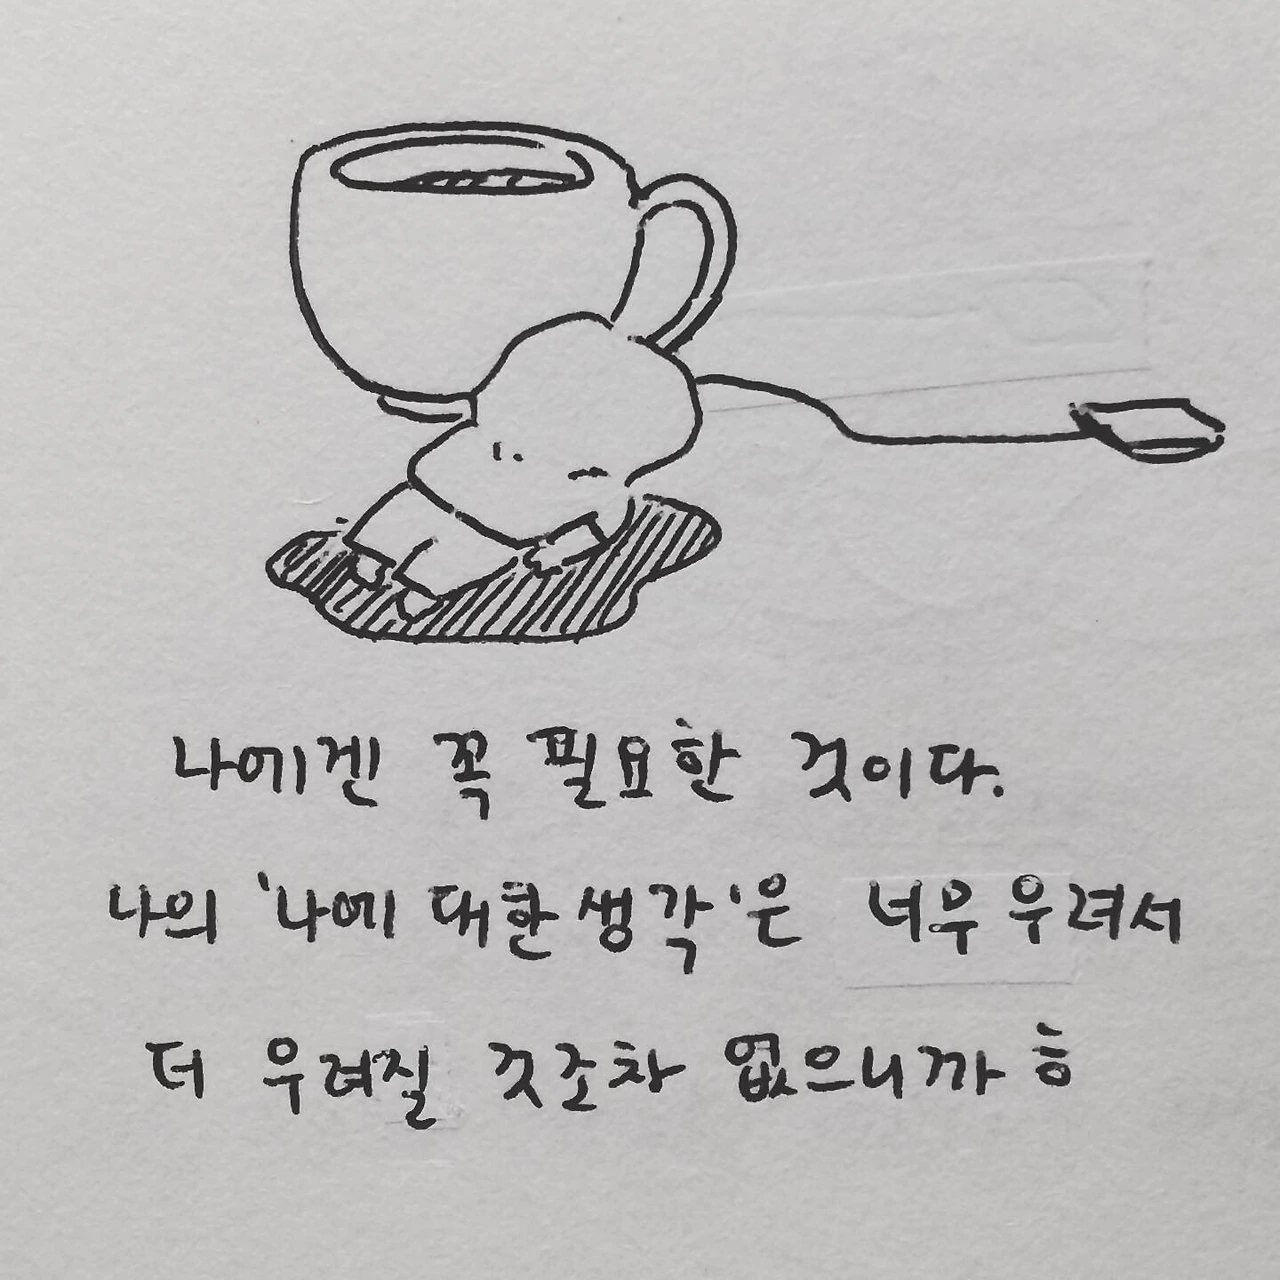 나에겐 꼭 필요한 것이다.
나의 '나에 대한 생각'은 너무 우려서
더 우려질 것조차 없으니까 ㅎ